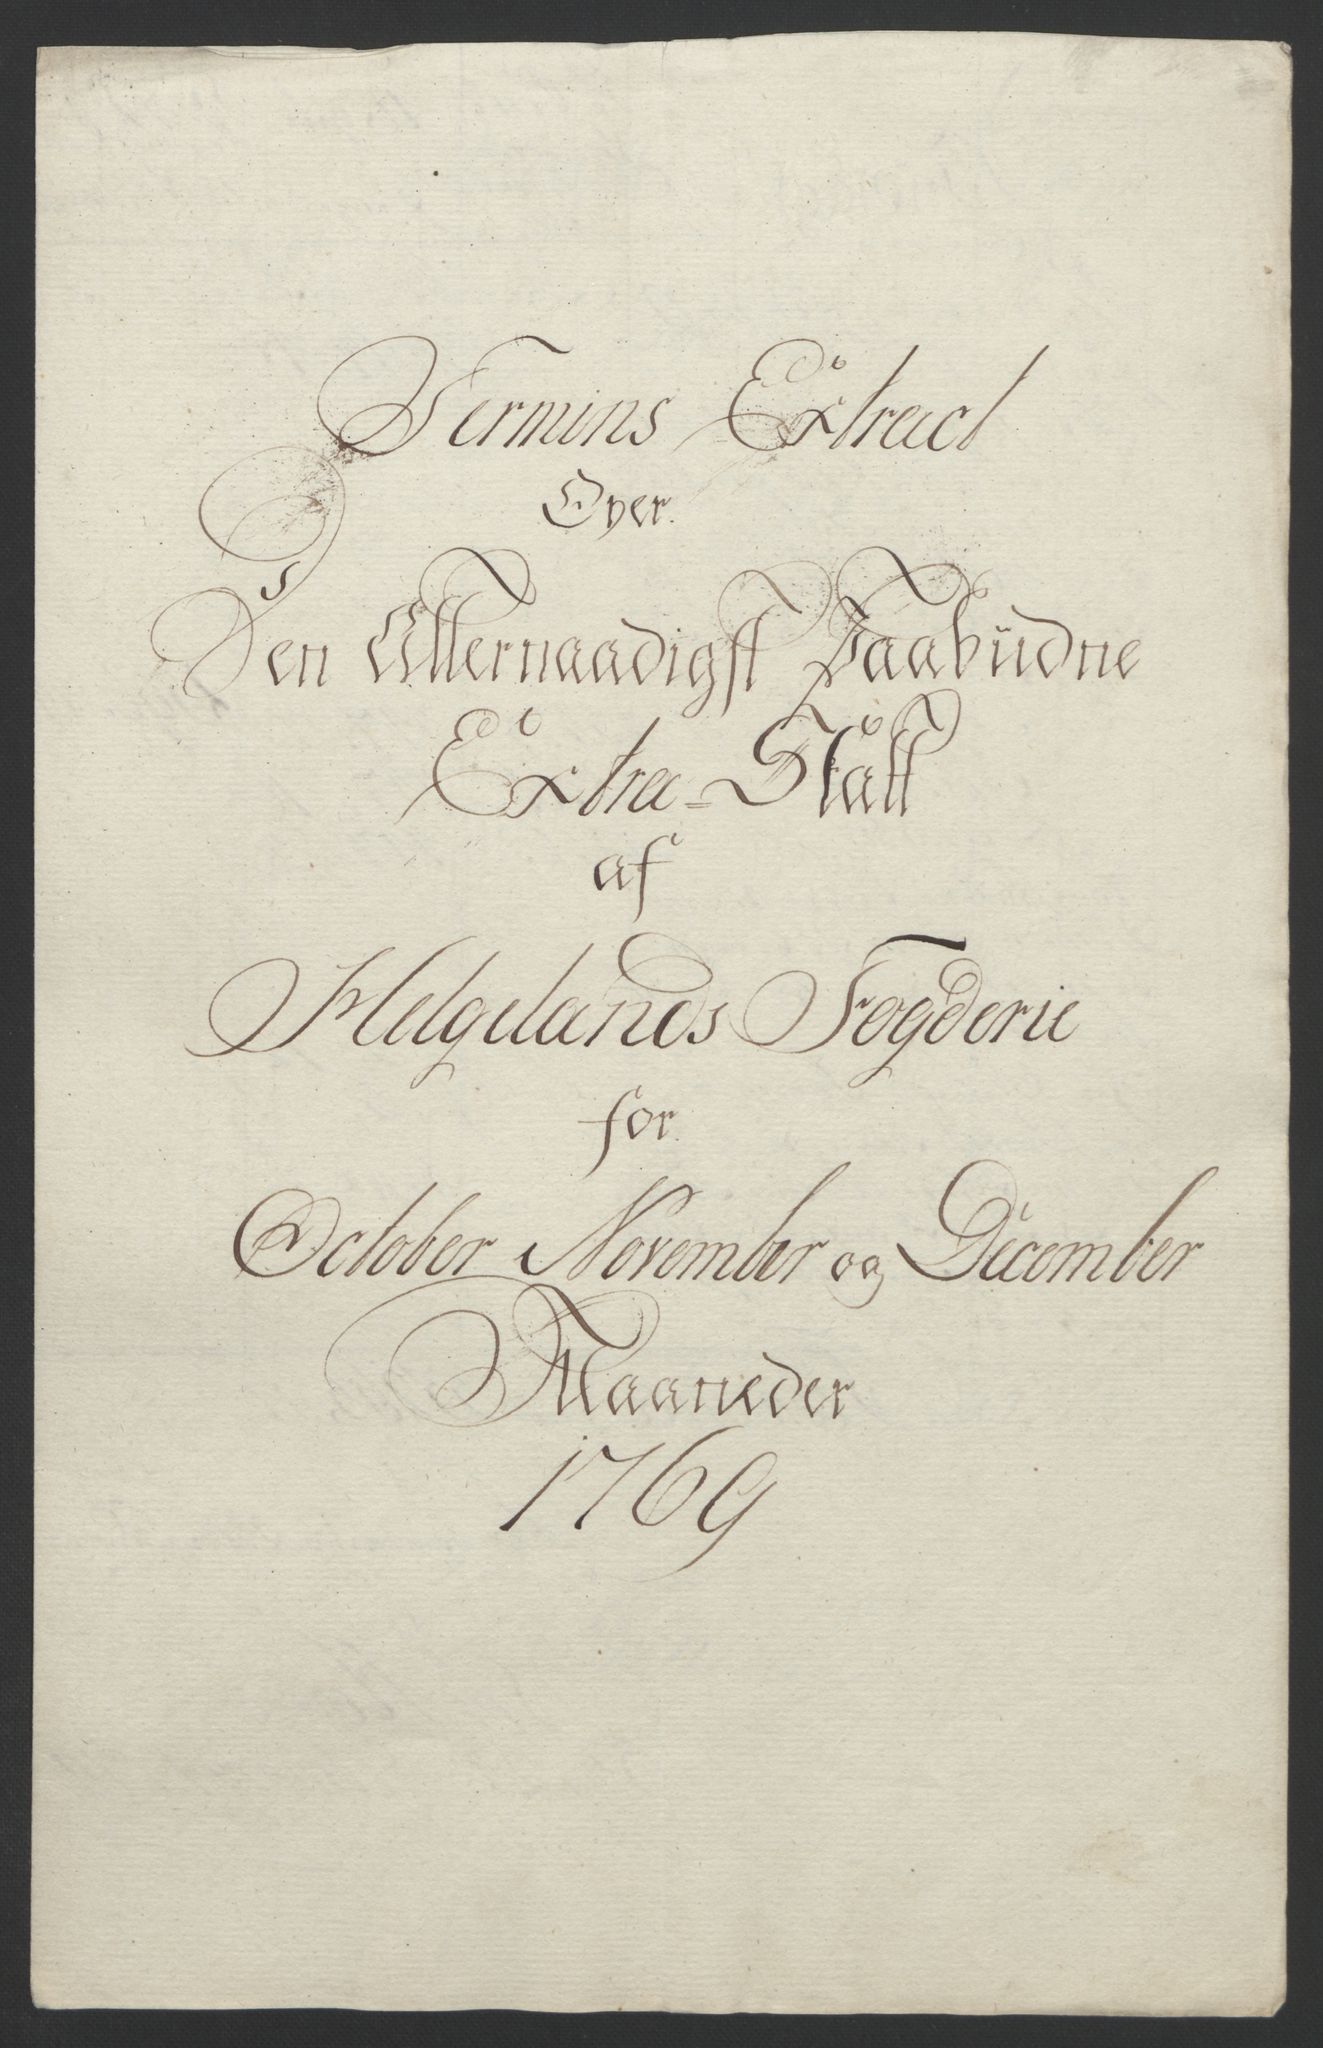 Termins Extract
Over.
Den Allernaadigst Paabudne
Extra-Skatt
af
Helgelands Fogderie
for
October November og December
Maaneder
1769